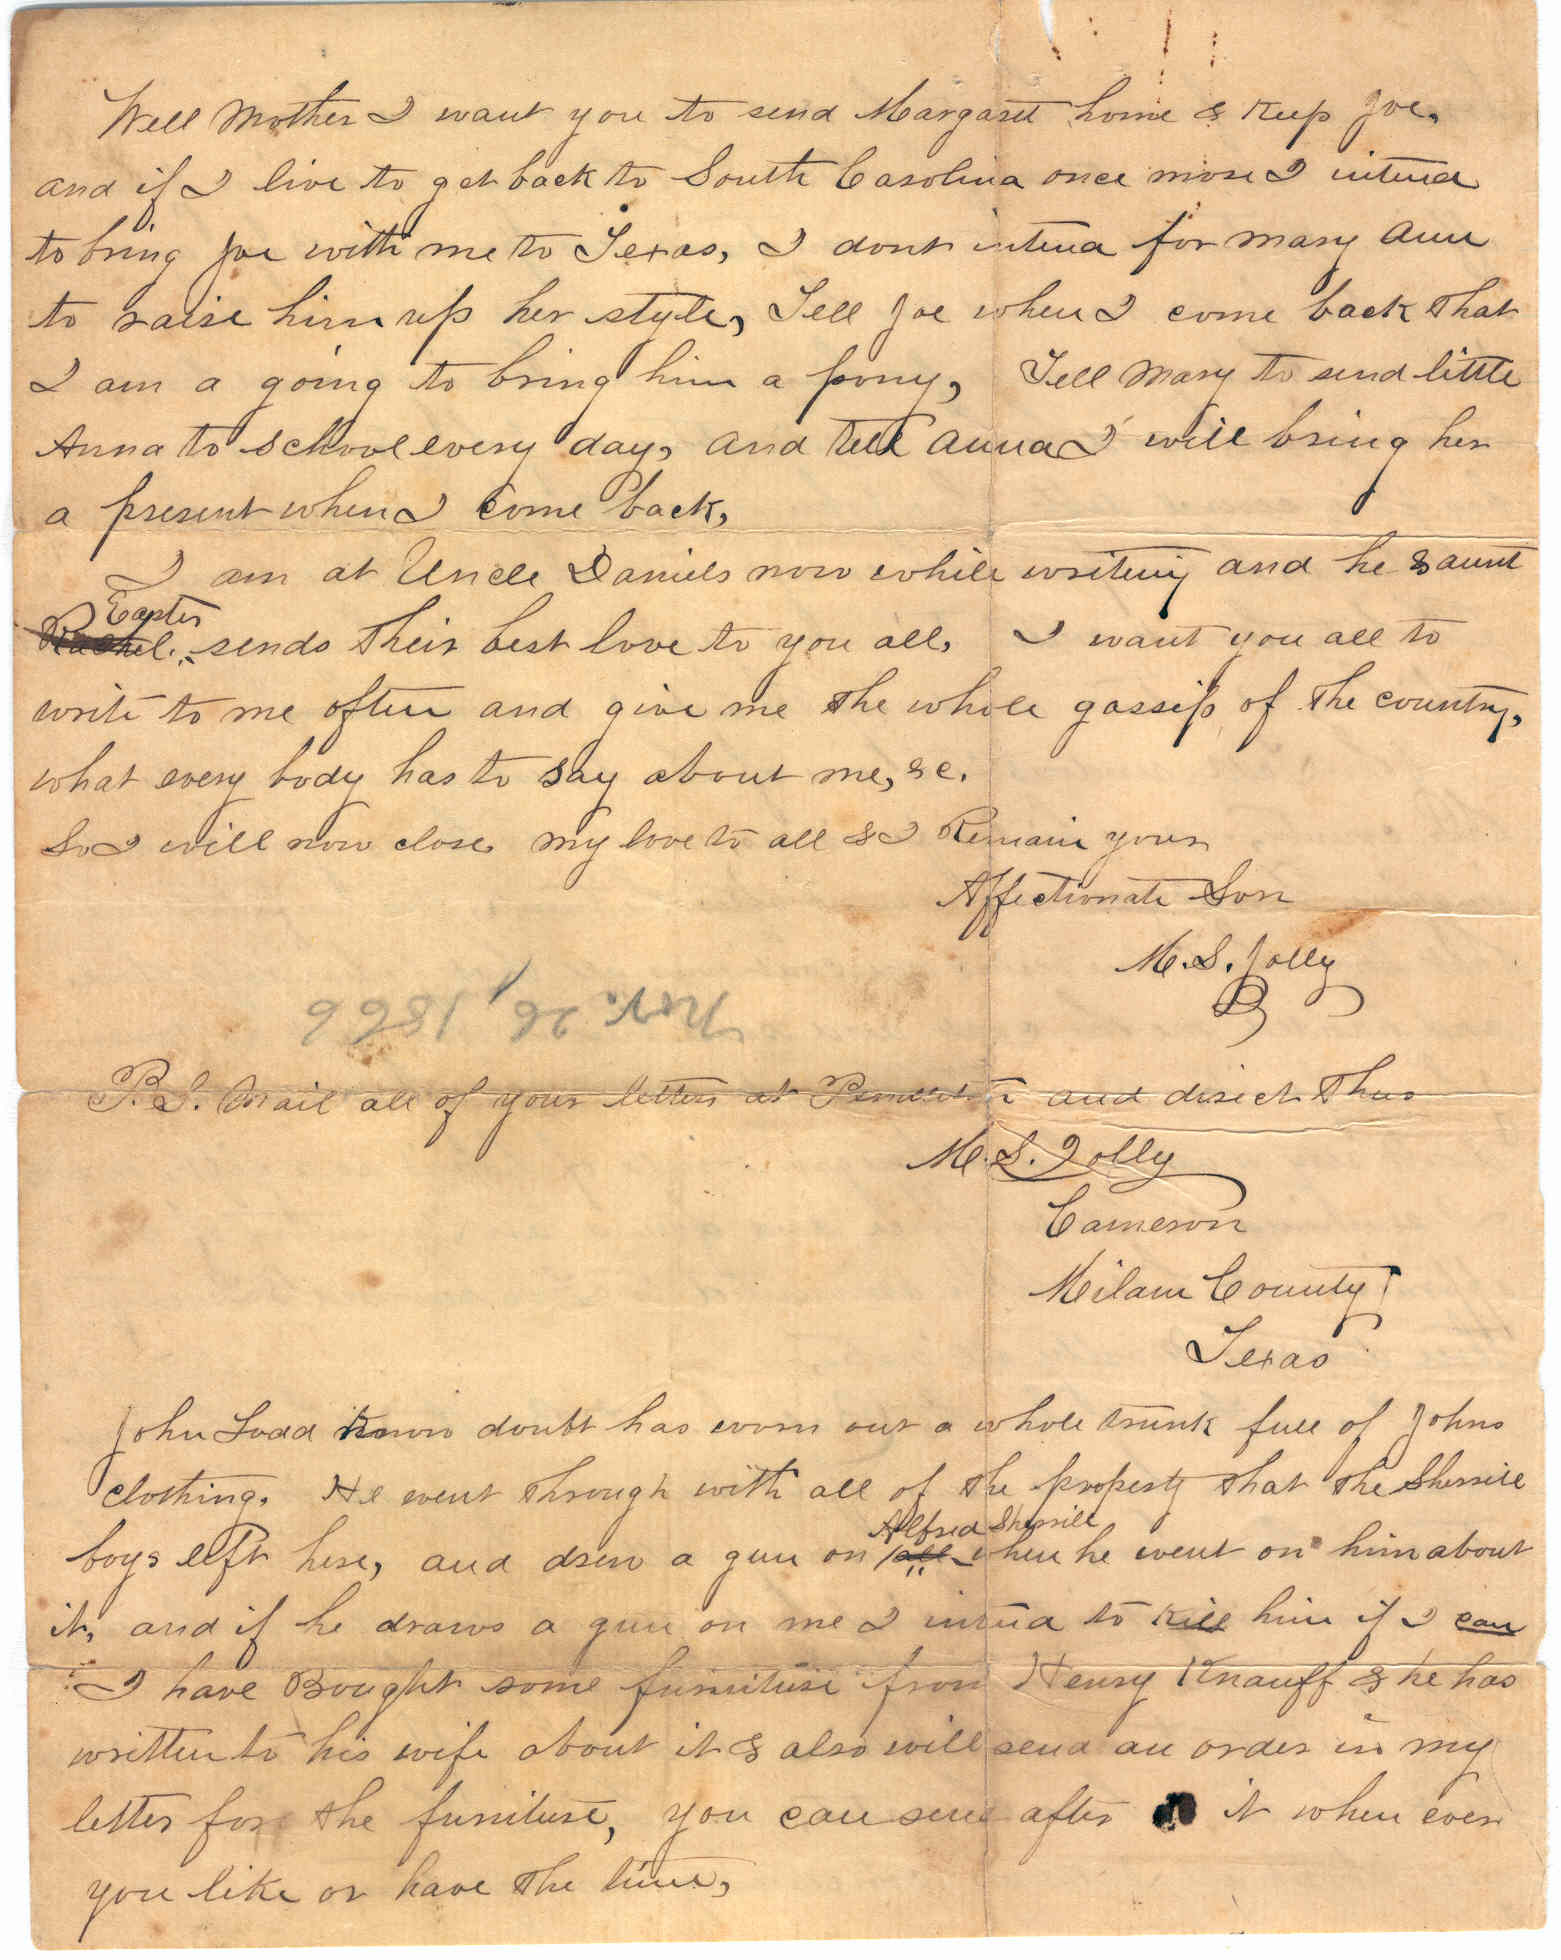 Well Mother I want you to send Margaret home & Keep Joe,
and if I live to get back to South Carolina once more I intend
to bring Joe with me to Texas, I dont intend for Mary Ann
to raise him up her style, Tell Joe when I come back that
I am a going to bring him a pony, Tell Mary to send little
Anna to school every day, and tell Anna I will bring her
a present when I come back,
I am at Uncle Daniels now while writing and he & aunt
Easter
Rachel sends their best love to you all, I want you all to
write to me often and give me the whole gossip of the country,
what every body has to say about me, &c.
So I will now close my love to all & I Remain your
Affectionate Son
M. S. Jolly
Nov. 26, 1866
P.S. Mail all of your letters at Pendleton and direct thus
M. S. Jolly
Cameron
Milam County
Texas
John Ladd known doubt has worn out a whole trunk full of Johns
clothing. He went through with all of the property that the Sherrill
Alfred Sherrill
boys left here, and drew a gun on when he went on him about
it, and if he draws a gun on me I intend to kill him if I can
I have Bought some furniture from Henry Knauff & he has
written to his wife about it & also will send an order in my
letter for the furniture, you can send after it when ever
you like or have the time,